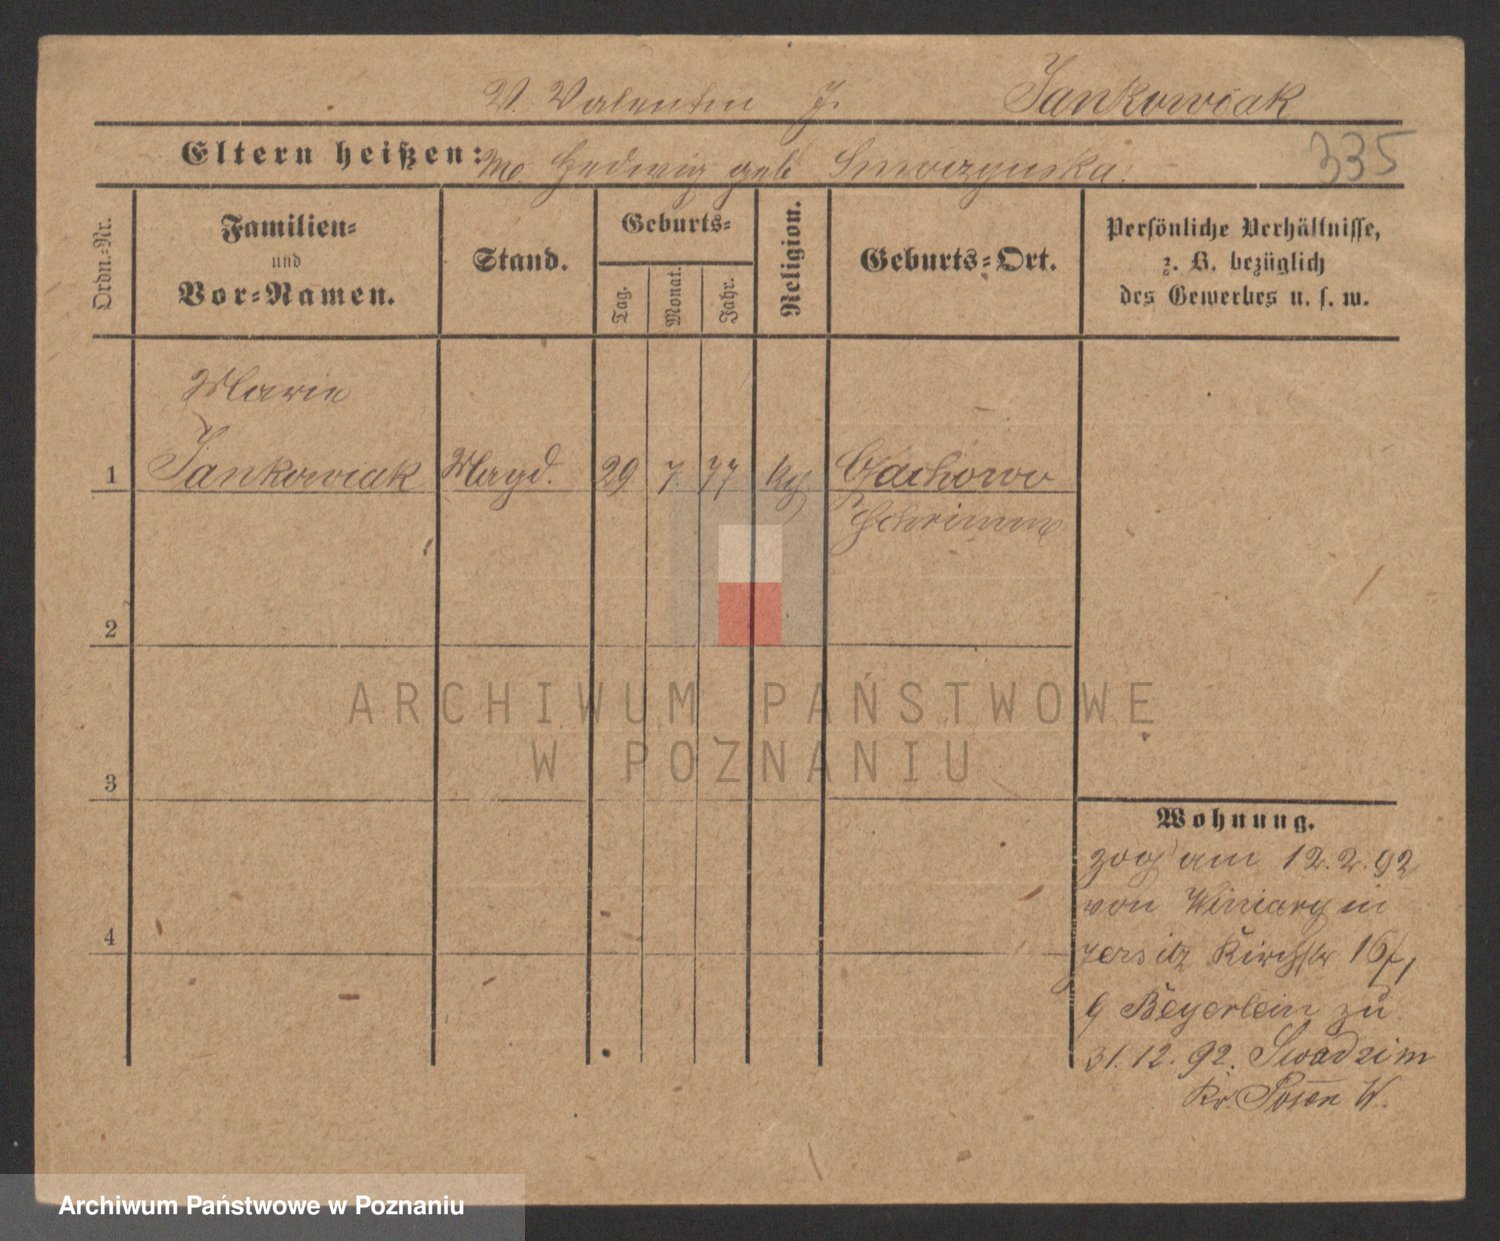 V. Valentin J. Jankowiak
Eltern heißen: Me Hedwig geb Smoczynska.
335
Ordn.-Nr.
Familien-
und
Vor-Namen.
Stand.
Geburts-
Tag.
Monat.
Jahr.
Religion.
Geburts-Ort.
Persönliche Verhältnisse,
z. B. bezüglich
des Gewerbes u. s. w.
Marie
1 Jankowiak Magd. 29 7 77 Czachowo
Schrimm
2
3
4
ARCHIWUM PAŃSTWOWE
W POZNANIU
Wohnung.
zog am 12.2.92
von Winiary in
Jersitz Kirchstr 16/1
b Beyerlein zu
31.12.92. Swadzim
Kr. Posen W.
Archiwum Państwowe w Poznaniu